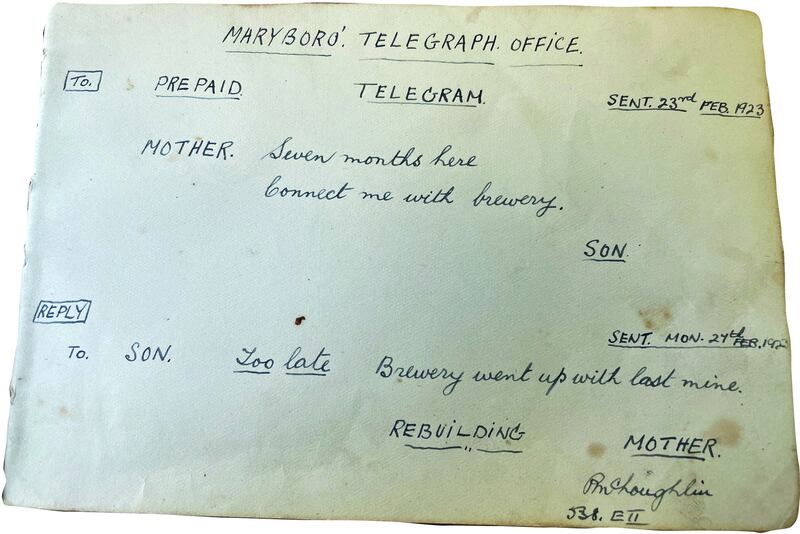 MARYBORO'. TELEGRAPH. OFFICE.
To. PREPAID. TELEGRAM. SENT. 23rd FEB. 1923
MOTHER. Seven months here
Connect me with brewery.
SON.
REPLY
SENT. MON. 27th FEB. 1923
To. SON. Too late Brewery went up with last mine.
REBUILDING
MOTHER.
P McLoughlin
538. E II